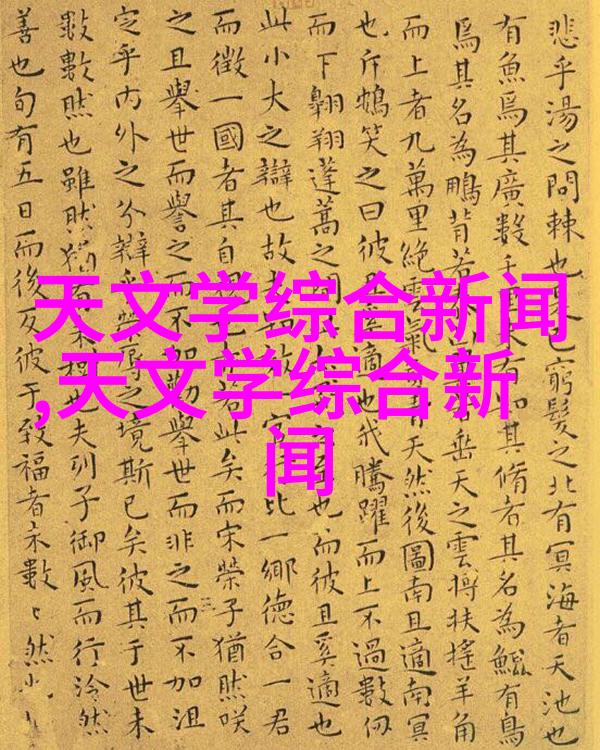 天文学综合新闻
,天文学综合新
闻
悲乎湯之問棘也是也窮髮之北有冥海者天池也
有魚焉其廣數千有知其脩者其名為鯤有鳥
焉其名為鵬背若天之雲摶扶搖羊角
而上者九萬里絕雲氣青天然後圖南且適南冥
也斥鴳笑之曰彼適也我騰躍而上不過數仞
而下翱翔蓬蒿之間也而彼且奚適也
此小大之辯也故一官比一鄉德合一君
而徵一國者其自視也亦若此矣而宋榮子猶然咲
之且舉世而譽之而不加勸舉世而非之而不加沮
定乎內外之分辯乎榮辱之境斯已矣彼其于世未
數數然也雖然猶有未樹也夫列子御風而行泠然
善也旬有五日而後反彼于致福者未數々然也